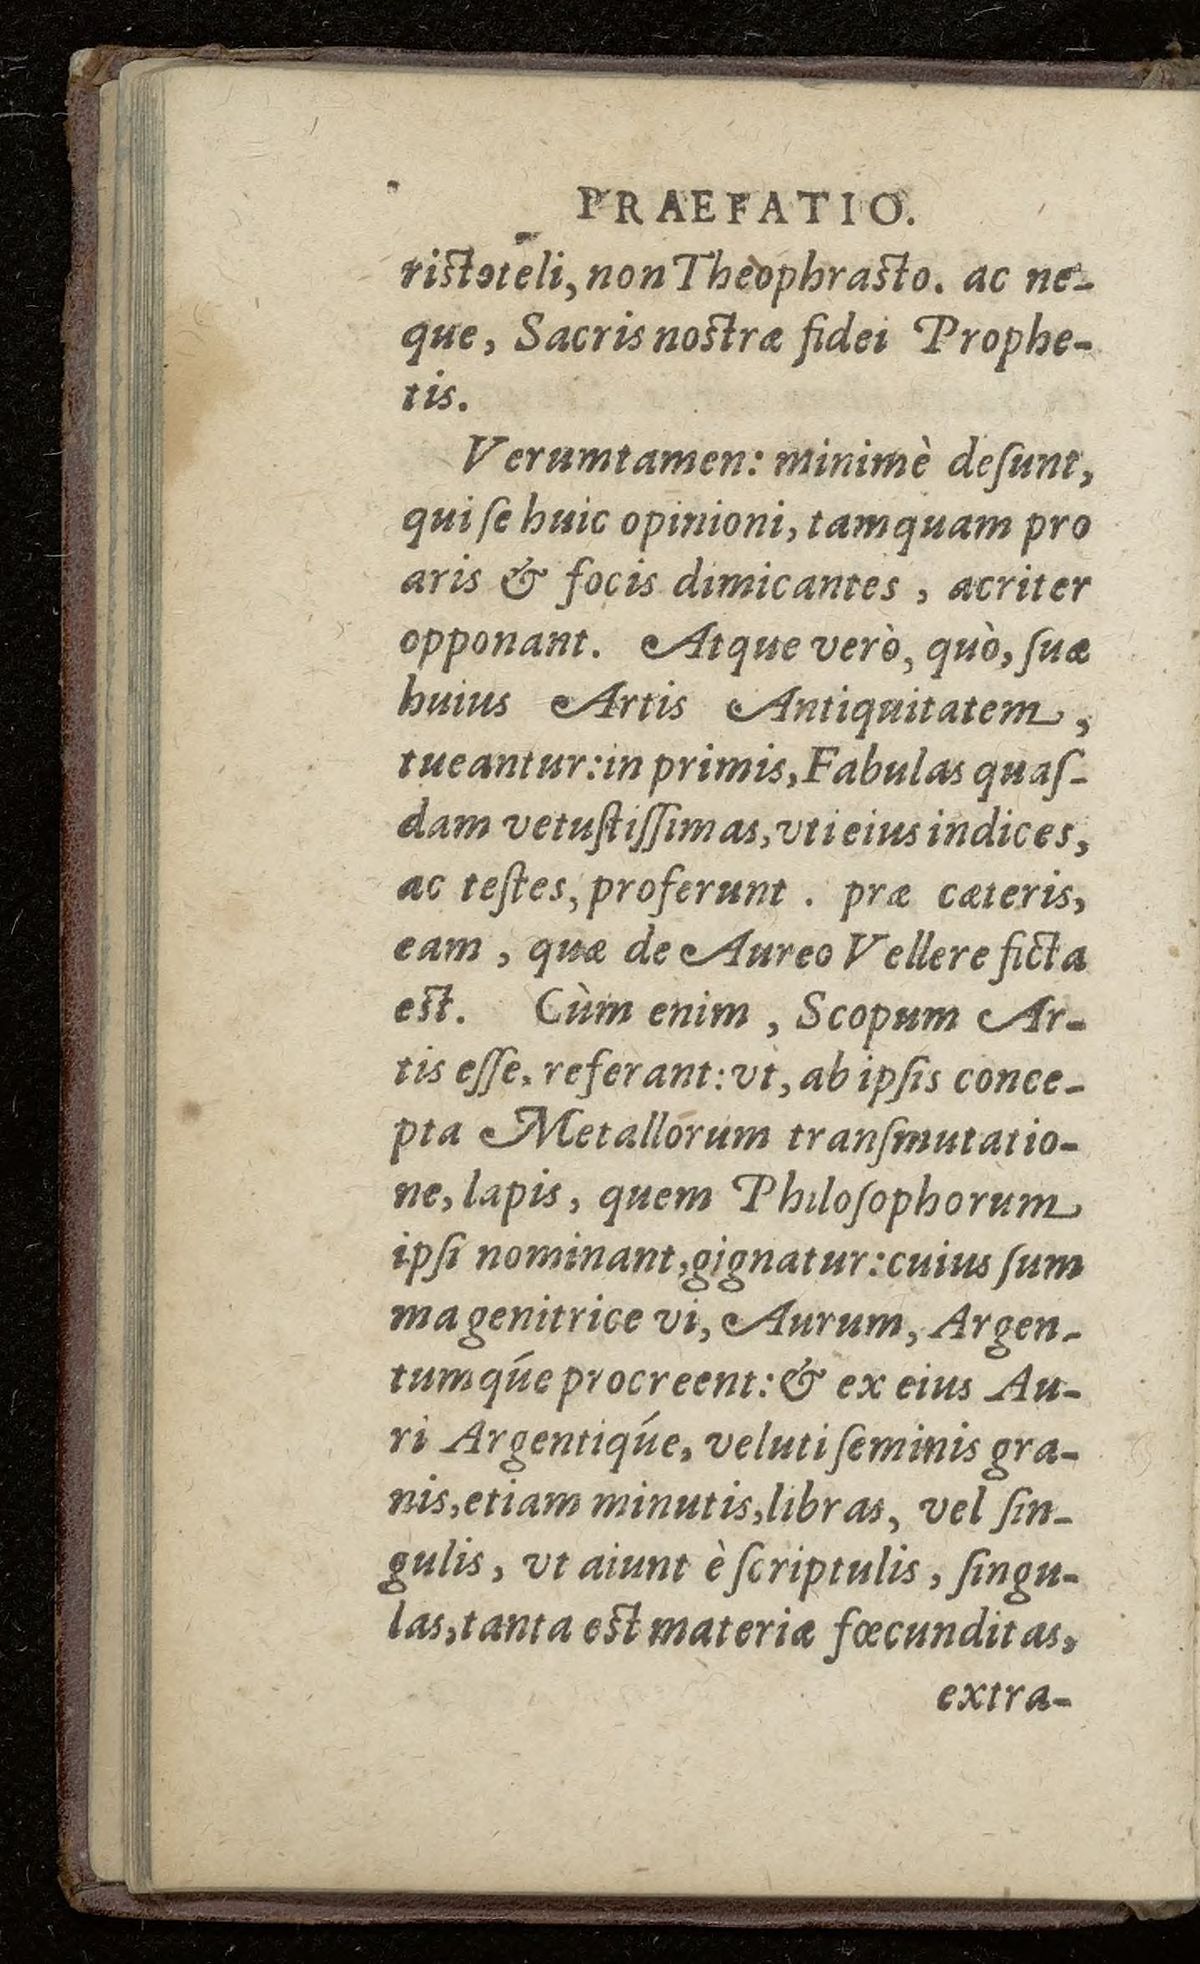 PRAEFATIO.
ristoteli, non Theophrasto. ac ne-
que, Sacris nostræ fidei Prophe-
tis.
Verumtamen: minimè deſunt,
qui ſe huic opinioni, tamquam pro
aris & focis dimicantes, acriter
opponant. Atque verò, quò, ſuæ
huius Artis Antiquitatem,
tueantur: in primis, Fabulas quaſ-
dam vetuſtiſſimas, vti eius indices,
ac teſtes, proferunt. præ cæteris,
eam, quæ de Aureo Vellere ficta
est. Cùm enim, Scopum Ar-
tis eſſe, referant: vt, ab ipſis conce-
pta Metallorum tranſmutatio-
ne, lapis, quem Philoſophorum
ipſi nominant, gignatur: cuius ſum
ma genitrice vi, Aurum, Argen-
tumq́ue procreent: & ex eius Au-
ri Argentiq́ue, veluti ſeminis gra-
nis, etiam minutis, libras, vel ſin-
gulis, vt aiunt è ſcriptulis, ſingu-
las, tanta est materiæ fœcunditas,
extra-